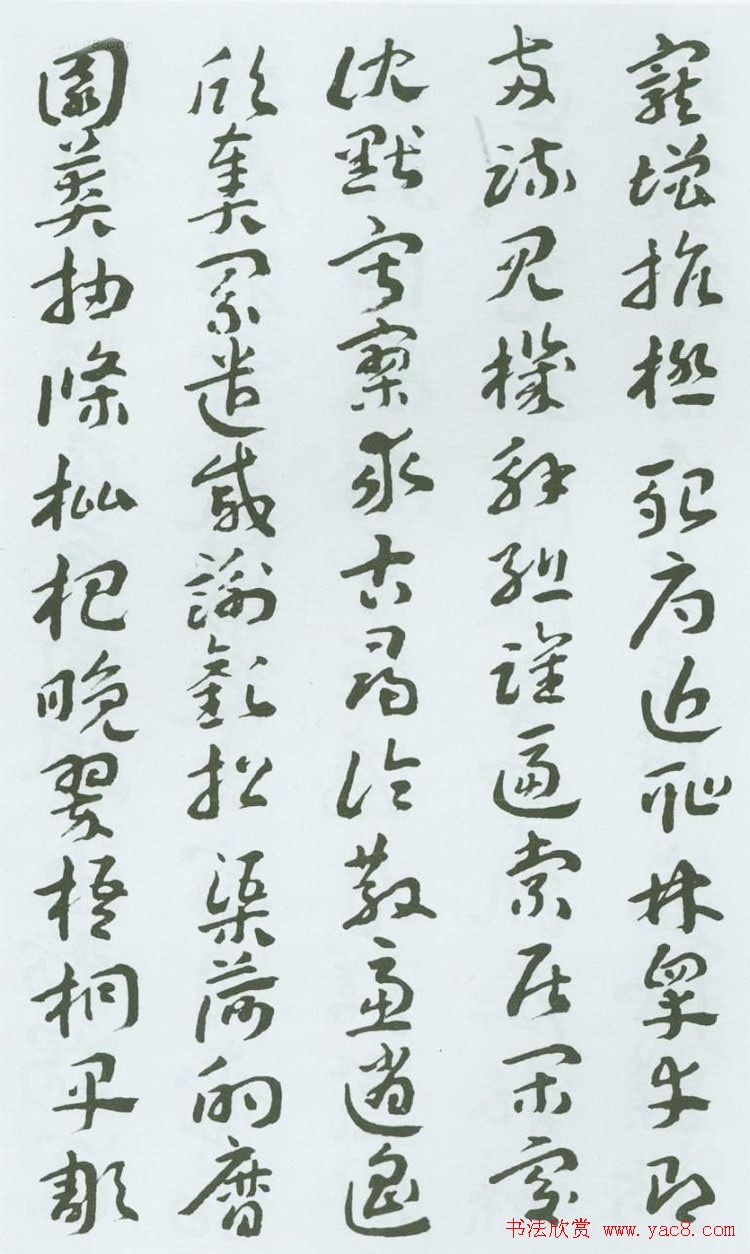 寵增抗極殆辱近恥林皋幸即
兩疏見機解組誰逼索居閑處
沈默寂寥求古尋論散慮逍遙
欣奏累遣慼謝歡招渠荷的歷
園莽抽條枇杷晚翠梧桐早彫
书法欣赏 www.yac8.com